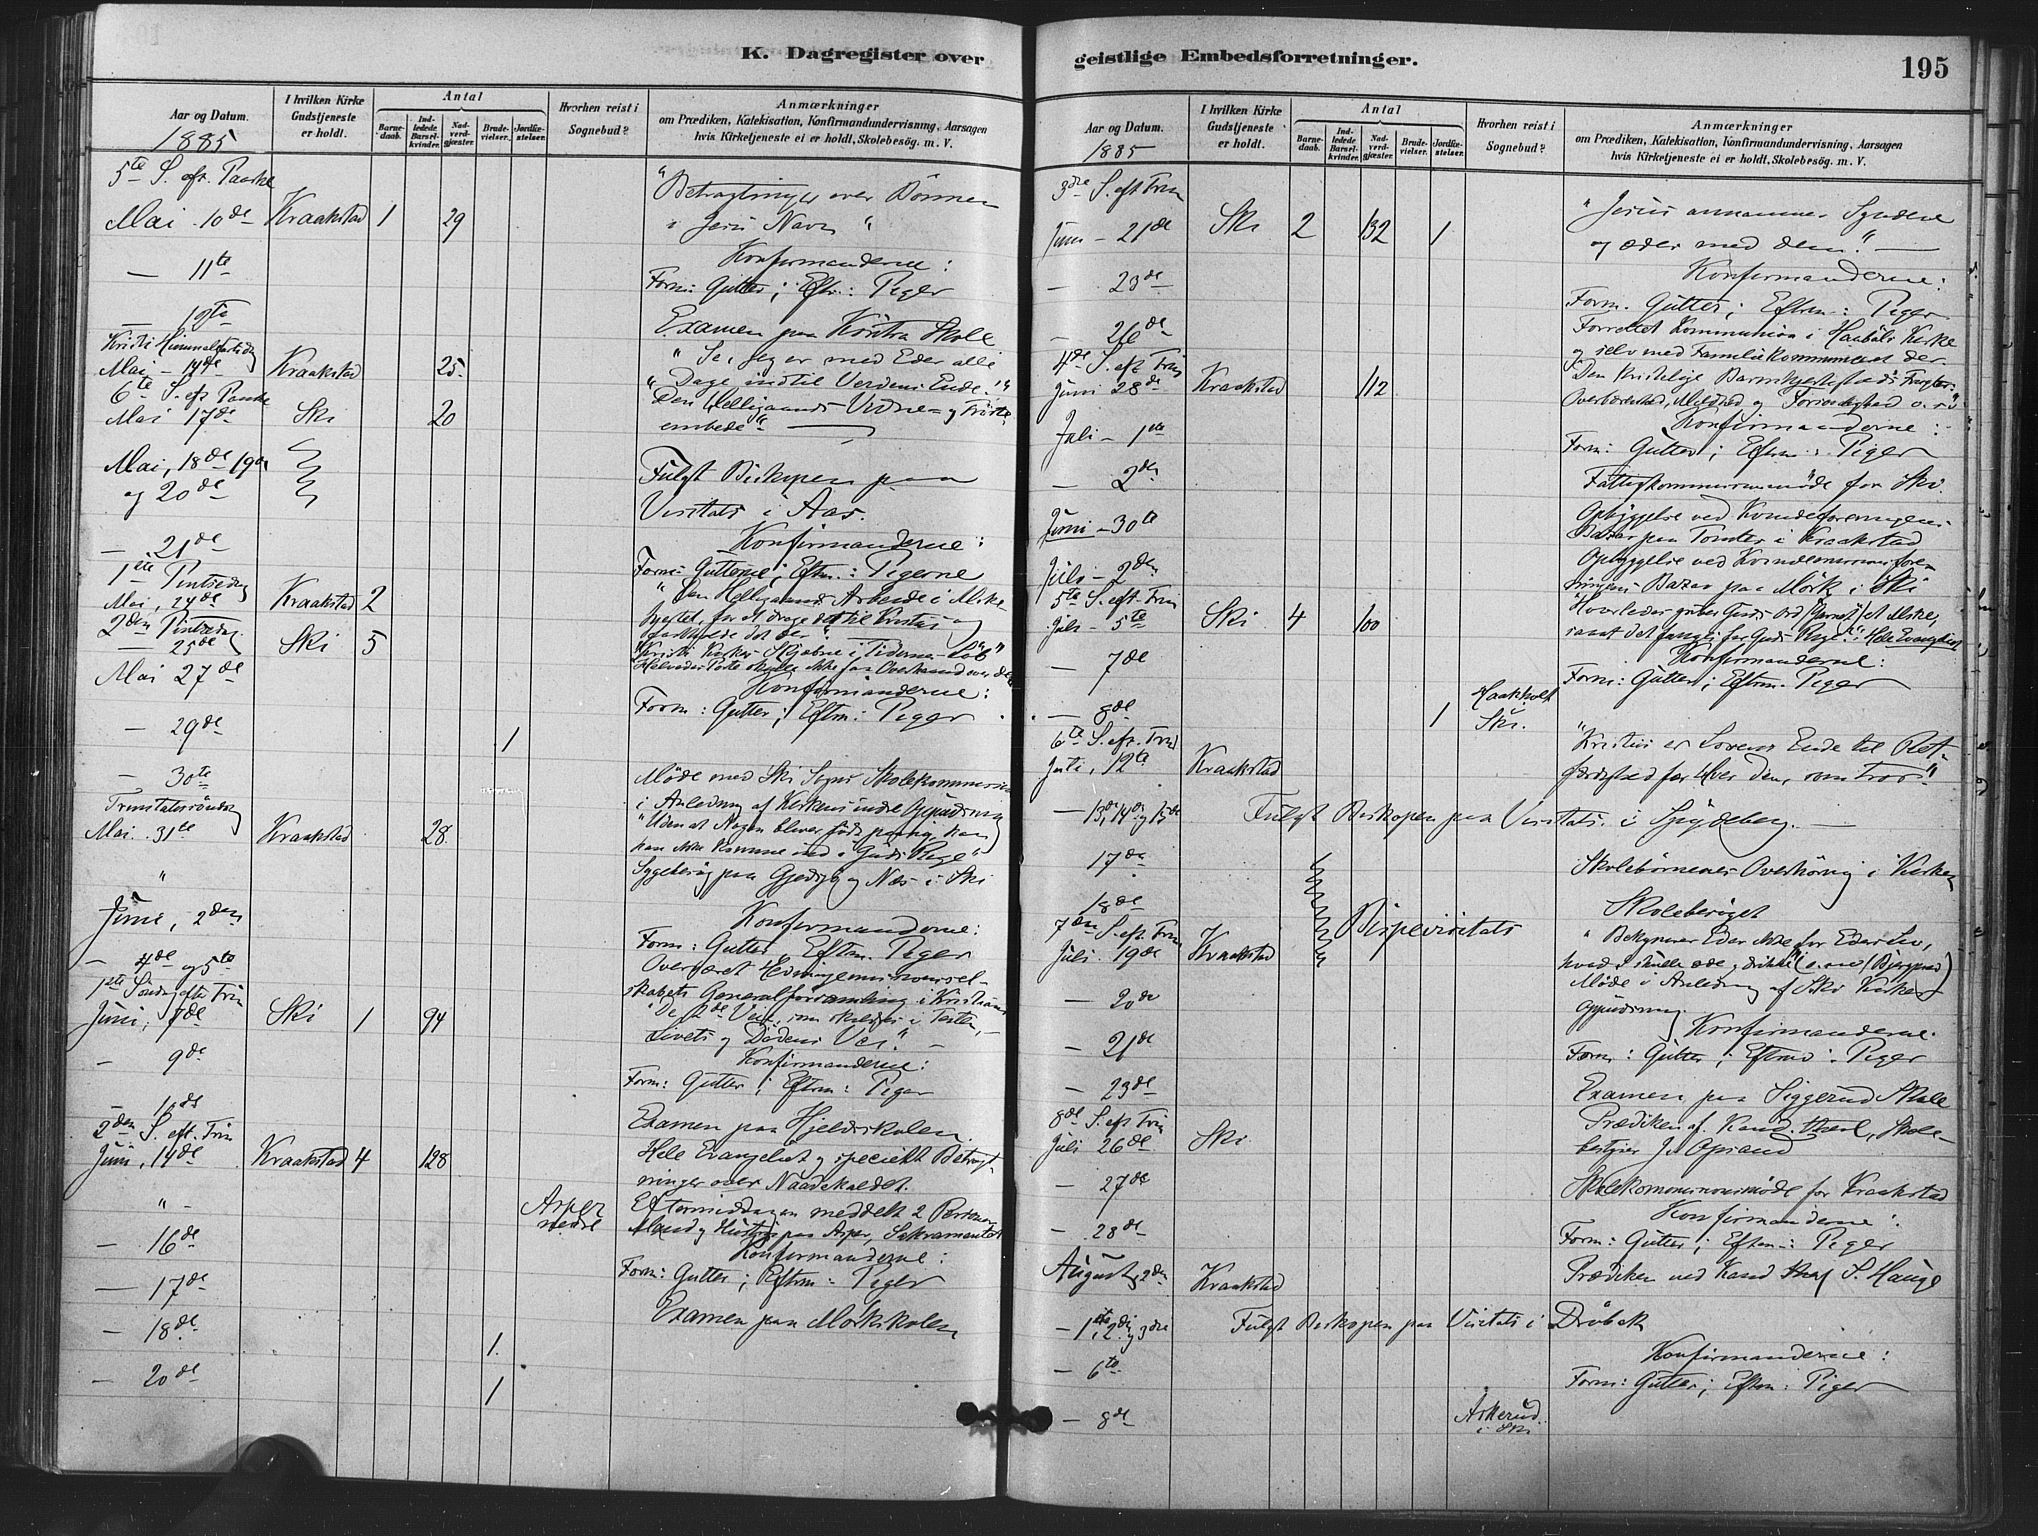 K. Dagregister over
Aar og Datum.
1885
I hvilken Kirke Gudstjeneste er holdt.
Antal
Barnedaab.
Indledede Barselkvinder.
Nadverdgjæster.
Brudevielser.
Jordfæstelser.
Hvorhen reist i Sognebud?
Anmærkninger
om Prædiken, Katekisation, Konfirmandundervisning, Aarsagen
hvis Kirketjeneste ei er holdt, Skolebesøg. m. V.
5te S. eft. Paaske
Mai 10de Kraakstad 1 29 "Betragtninger over Bönnen
i Jesu Navn"
— 11te Konfirmanderne:
Form: Gutter; Eftr.: Piger
Examen paa Skole
Kristi Himmelfartsdag
Mai — 14de Kraakstad 25. "Se, jeg er med Eder alle
Dage indtil Verdens Ende."
6te S. eft. Paaske
Mai 17de Ski 20 Den Helligaands Vidne- og Tröste-
embede" —
Mai, 18de 19de
og 20de Fulgt Biskopen paa
Visitats i Aas.
— 21de Konfirmanderne:
Form: Gutterne; Eftm.: Pigerne
1ste Pintsedag
Mai, 24de Kraakstad 2 "Den Helligaands Arbeide i Menneske-
hjertet, for at drage det til Kristus og
fastholde det der"
2den Pintsedag
— 25de Ski 5 "Kristi Kirkes Skjæbne i Tidernes Löb"
Helvedes Porte skulle ikke faa Overhaand over den
Mai 27de Konfirmanderne:
Form: Gutter; Eftm: Piger
— 29de 1
— 30te Möde med Ski Sogns Skolekommission
i Anledning af Kirkens indre Oppudsning
Trinitatissöndag
Mai 31te Kraakstad 28. "Uden at Nogen bliver födt paany, kan
han ikke komme ind i Guds Rige"
" Sygebesög paa og Næs i Ski
Juni, 2den Konfirmanderne:
Form: Gutter Eftm. Piger
— 4de og 5te Overværet Hedningemissionssel-
skabets Generalforsamling i Kristiania
1ste Söndag efter Trin
Juni, 7de Ski 1 94 "De 2de Veie, som skildres i Texten, —
Livets og Dödens Vei."
— 9de Konfirmanderne:
Form: Gutter; Eftm: Piger
— 10de Examen paa Hjeldskolen.
2den S. eft. Trin
Juni, 14de Kraakstad 4 128 Hele Evangeliet og specielt Betragt-
ninger over Naadekaldet.
" Asper nedre Eftermiddagen meddelt 2 Personer
Mand og Hustru paa Asper, Sakramentet
— 16de Konfirmanderne:
Form: Gutter; Eftm: Piger
— 17de Examen paa Morkskolen
— 18de 1.
— 20de 1
geistlige Embedsforretninger.
195
Aar og Datum.
1885
I hvilken Kirke Gudstjeneste er holdt.
Antal
Barnedaab.
Indledede Barselkvinder.
Nadverdgjæster.
Brudevielser.
Jordfæstelser.
Hvorhen reist i Sognebud?
Anmærkninger
om Prædiken, Katekisation, Konfirmandundervisning, Aarsagen
hvis Kirketjeneste ei er holdt, Skolebesög. m. V.
3die S. eft Trin
Juni — 21de Ski 2 132 1 "Jesus annammer Syndere
og æder med dem." —
— 23de Konfirmanderne:
Form. Gutter; Eftm: Piger
— 26de Forrettet Kommunion i Haaböls Kirke
og selv med Familie kommuniceret der.
4de S. eft Trin
Juni 28de Kraakstad 112 "Den kristelige Barmhjertigheds
Overbærenhed, Mildhed og
Juli — 1ste Konfirmanderne:
Form: Gutter; Eftm: Piger
— 2den Fattigkommissionsmöde for Ski.
Juni — 30te Opbyggelse ved Kvindeforeningens
Bazar paa Tomter i Kraakstad
Juli — 2den Opbyggelse ved Kvindemissionsfore-
ningens Bazar paa Mörk i Ski
5te S. eft. Trin
Juli — 5te Ski 4 100 "Hvorledes griber Guds Ord (Garnet) et Menneske,
samt det for Guds Rige." Hele Evangeliet
— 7de Konfirmanderne:
Form: Gutter; Eftm. Piger
— 8de 1 Haakholt
Ski.
6te S. eft. Trin
Juli, 12te Kraakstad "Kristus er Lovens Ende til Ret-
færdighed for Hver den, som tror"
— 13de, 14de og 15de Fulgt Biskopen paa Visitats i Spydeberg. —
— 17de Skolebörnenes Overhöring i Kirken
18de Skolebesöget
7de S. eft. Trin
Juli 19de Kraakstad Bispevisitats "Bekymrer Eder ikke for Eders Liv,
hvad I skulle æde og drikke"
— 20de Möde i Anledning af Ski Kirkes
Oppudsning.
— 21de Konfirmanderne.
Form: Gutter; Eftmd: Piger
— 23de Examen paa Siggerud Skole
8de S. eft Trin
Juli 26de Ski Prædiken af Kand. theol, Skole-
bestyrer J. Opsand
— 27de Skolekommissionsmöde for Kraakstad
— 28de Konfirmanderne:
Form: Gutter; Eftm: Piger
August 2den Kraakstad Prædiken ved Kand theol S. Hauge
— 1ste, 2den og 3die Fulgt Biskopen paa Visitats i Dröbak
— 6te Konfirmanderne:
Form: Gutter; Eftm: Piger
— 8de Askerud
i Ski